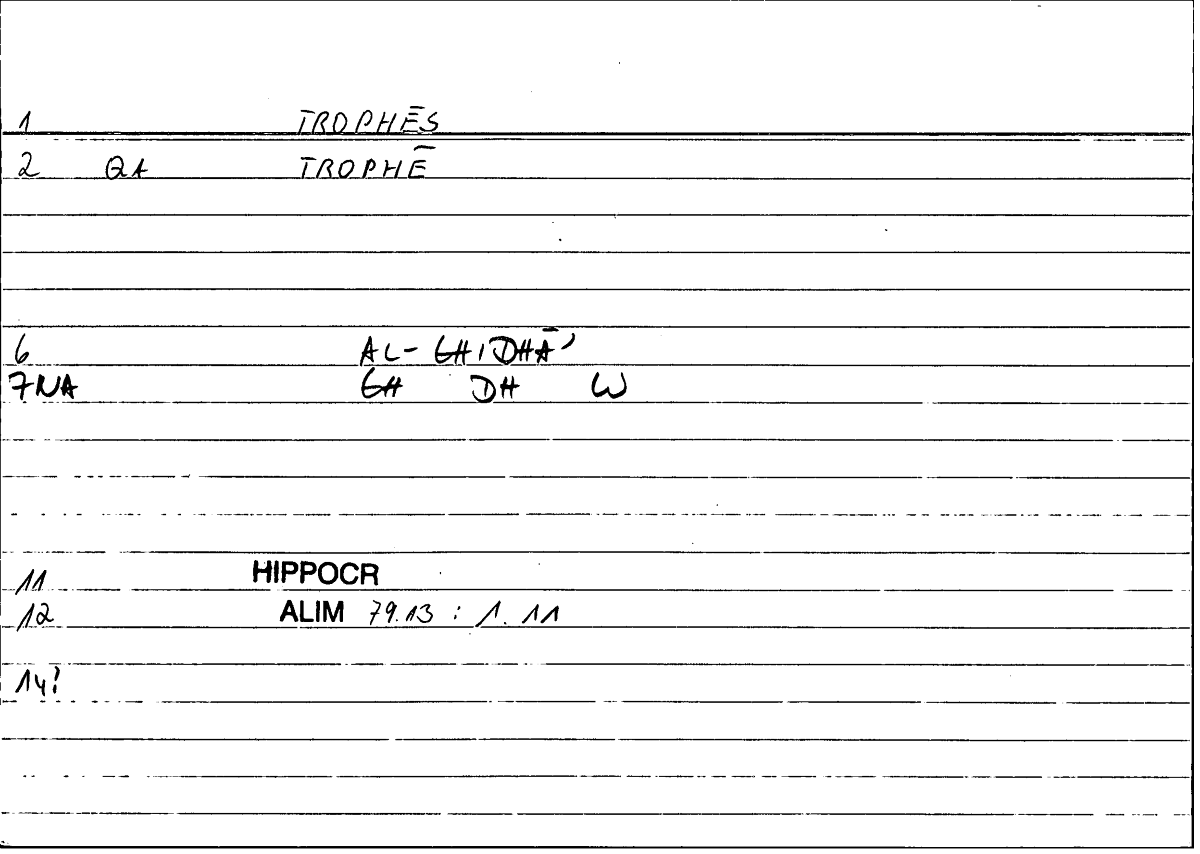 1 TROPHĒS
2 QA TROPHĒ
6 AL-GHIDHĀʾ
7NA GH DH W
11 HIPPOCR
12 ALIM 79.13 : 1. 11
14?